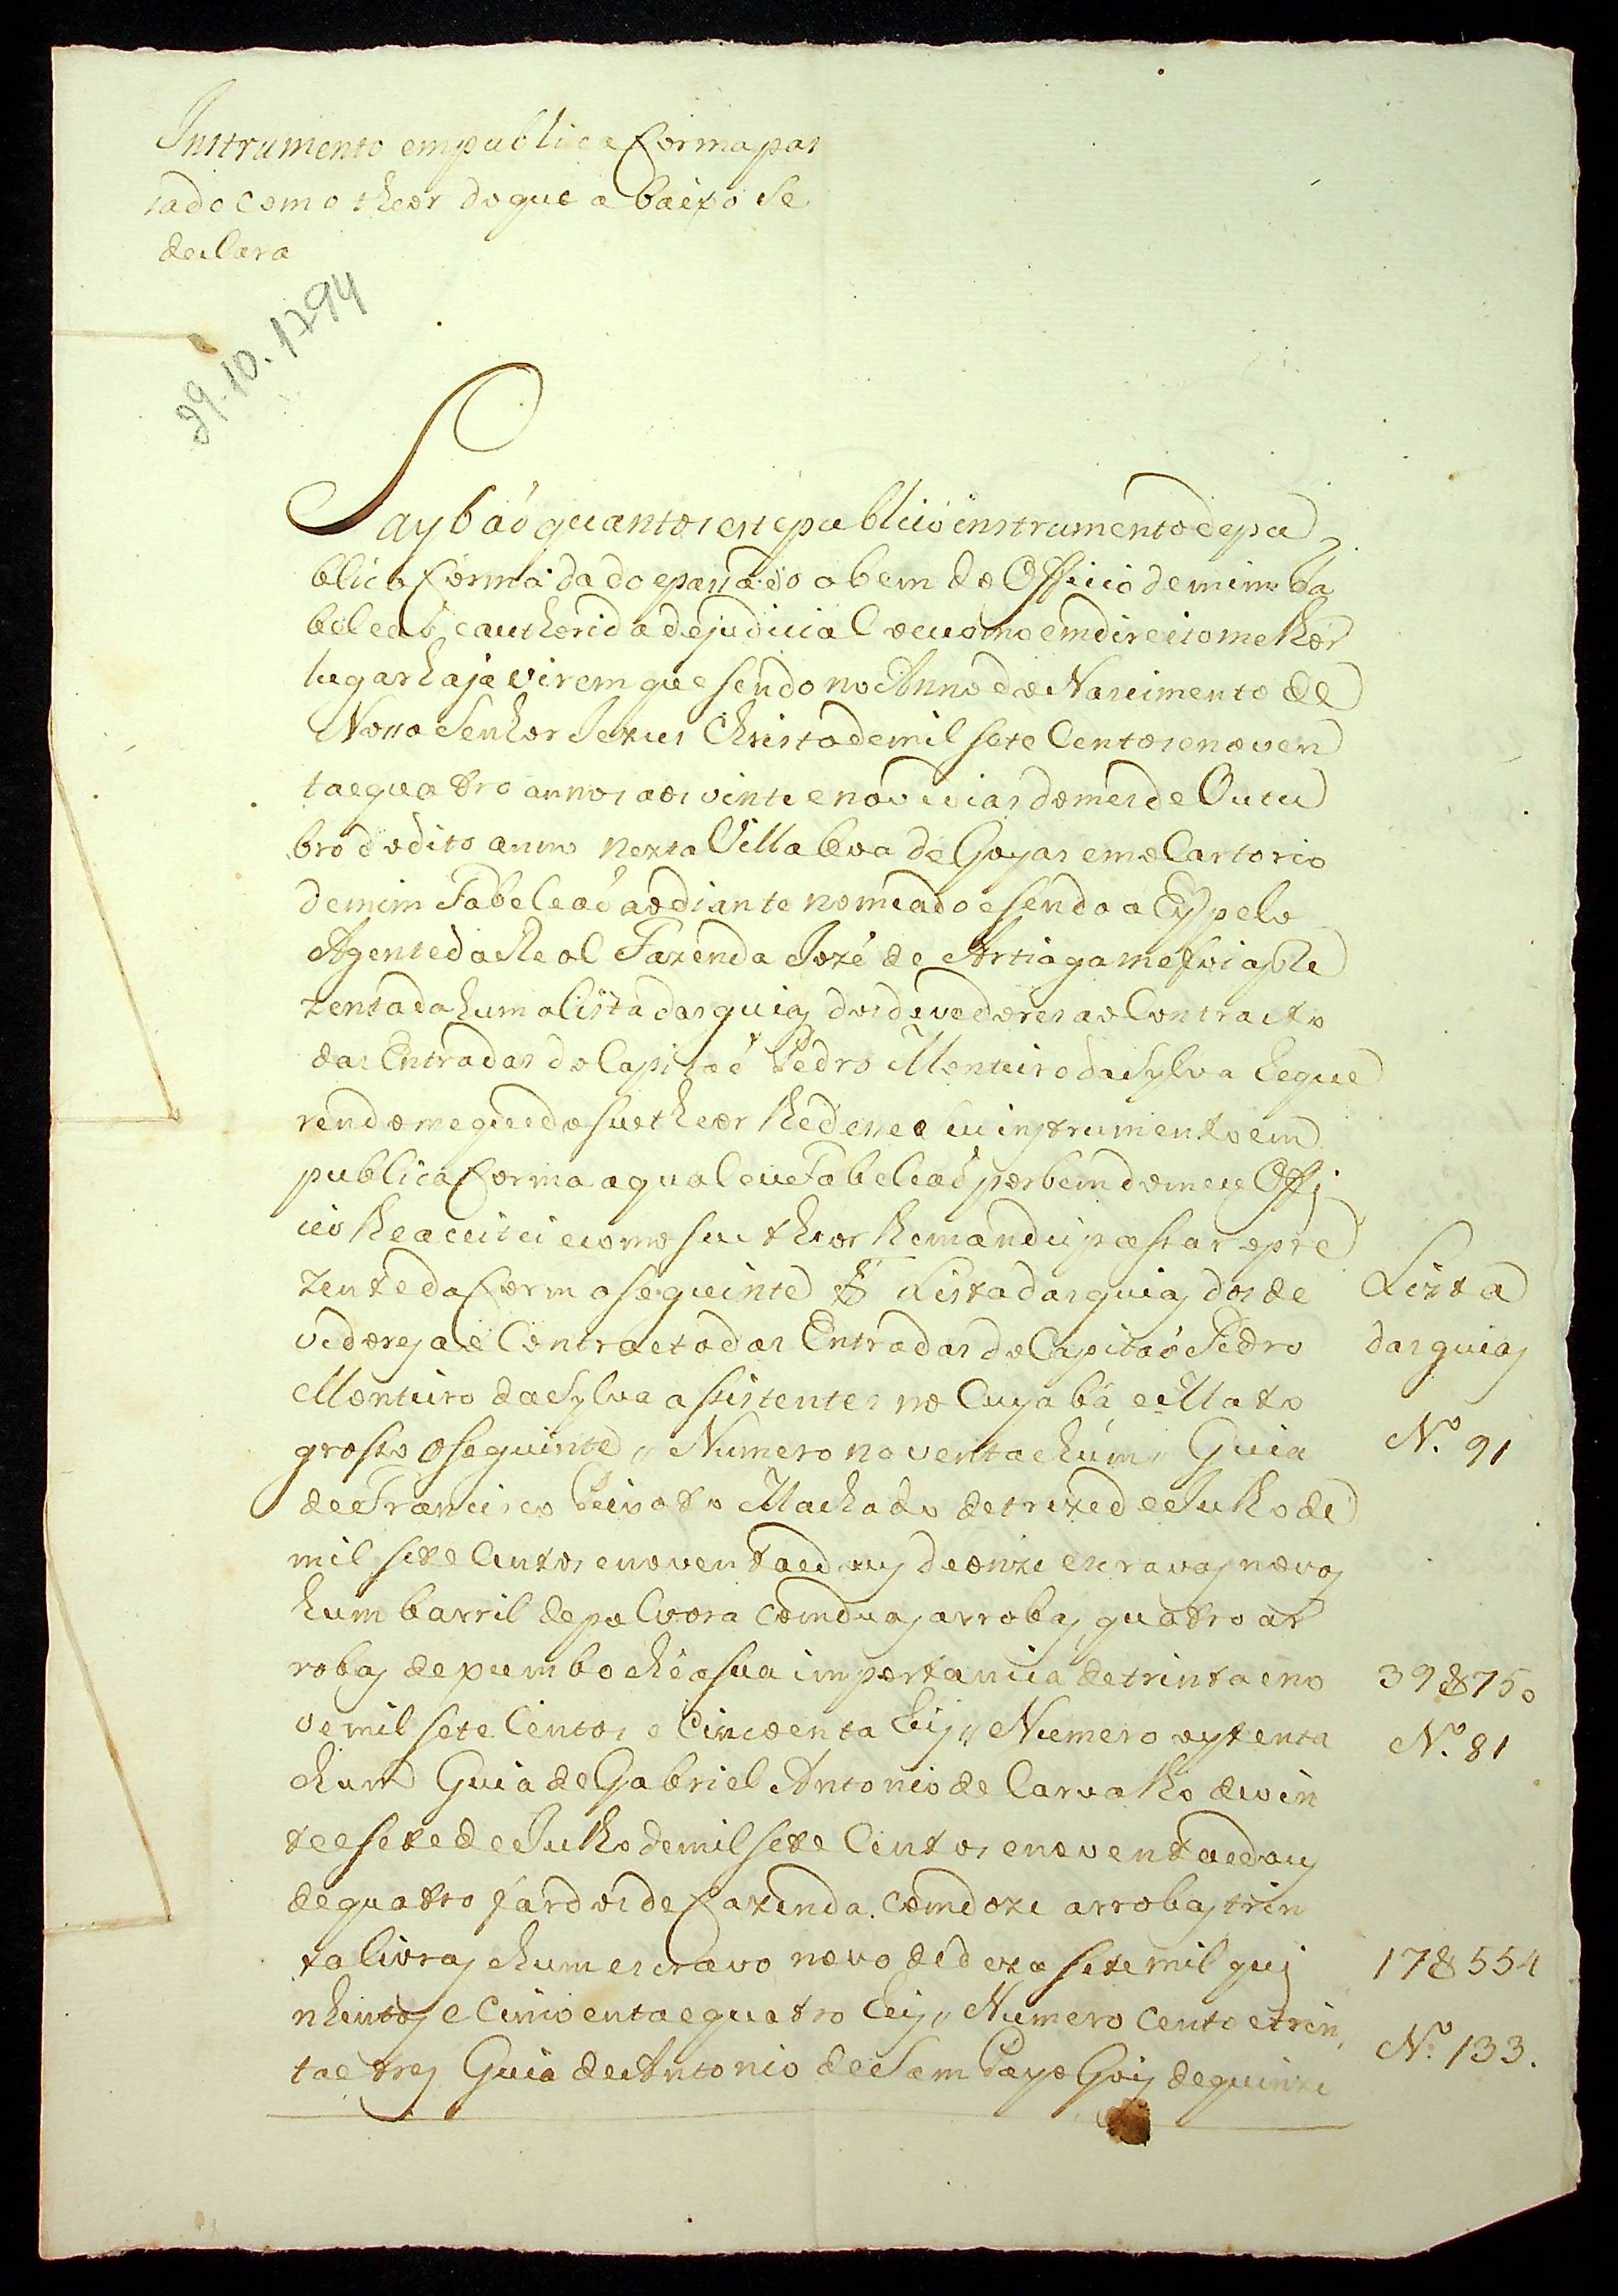 Instrumento em publica forma pas
sado com o theor do que abaixo se
declara
29.10.1794
Saybaó quantos este publico instrumento de pu
blica forma dado e passado a bem do Officio de mim Ta
beleaó e authoridade judicial ou como em direito melhor
lugar haja virem que sendo no Anno do Nascimento de
Nosso Senhor Jezus Christo de mil sete Centos e noven
ta e quatro annos aos vinte e nove dias do mes de Outu
bro do dito anno nesta Villa Boa de Goyas em o Cartorio
de mim Tabeleaó ao diante nomeado e sendo a hy pelo
Agente da Real Fazenda Jozé de Artiaga me foi apre
zentada huma lista das guias dos devedores ao Contracto
das Entradas do Capitaó Pedro Monteiro da Sylva Reque
rendome que do su theor lhe desse eu instrumento em
publica forma a qual eu Tabeleaó por bem do meu Offi
cio lhe aceitei e como su theor lhe mandei passar o pre
zente da forma seguinte Lista das guias dos de
vedores ao Contracto das Entradas do Capitaó Pedro
Monteiro da Sylva asistentes no Cuyabá e Mato
grosso o seguinte Numero noventa e hum Guia
de Francisco Peixoto Machado de treze de Julho de
mil sete Centos e noventa e dous de onze escravos novos
hum barril de polvora com duas arrobas quatro ar
robas de xumbo hé a sua importancia de trinta e no
ve mil sete Centos e Cincoenta Reis Numero oytenta
e hum Guia de Gabriel Antonio de Carvalho de vin
te e sete de Julho de mil sete Centos e noventa e dous
de quatro fardos de fazenda com doze arrobas trin
ta livras e hum escravo novo de deza sete mil qui
nhentos e Cincoenta e quatro Reis Numero Cento e trin
ta e tres Guia de Antonio de Sam Payo Gois de quinze
Lista
das guias
N.º 91
39$750
N.º 81
17$554
N.º 133.